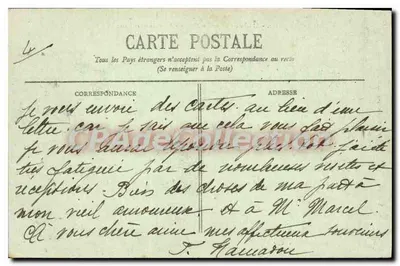 4.
CARTE POSTALE
Tous les Pays étrangers n'acceptent pas la Correspondance au recto
(Se renseigner à la Poste)
CORRESPONDANCE
ADRESSE
je vous envoie des cartes au lieu d'une
lettre car je sais que cela vous fait plaisir
je vous
très fatiguée par de nombreuses visites et
réceptions Bien des choses de ma part à
mon vieil amoureux et à Mr Marcel.
A vous chère amie mes affectueux souvenirs